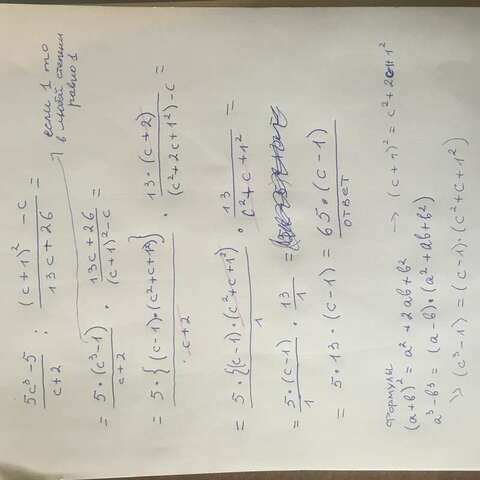 (5c³-5)/(c+2) : ((c+1)² - c)/(13c+26) =
если 1 то
в любой степени
равно 1
= 5·(c³-1)/(c+2) · (13c+26)/((c+1)²-c) =
= 5·{(c-1)·(c²+c+1²)}/(c+2) · 13·(c+2)/((c²+2c+1²)-c) =
= 5·{(c-1)·(c²+c+1²)}/1 · 13/(c²+c+1²) =
= 5·(c-1)/1 · 13/1 =
= 5·13·(c-1) = 65·(c-1)
ответ
Формулы
(a+b)² = a²+2ab+b² → (c+1)² = c²+2c+1²
a³-b³ = (a-b)·(a²+ab+b²)
→ (c³-1) = (c-1)·(c²+c+1²)